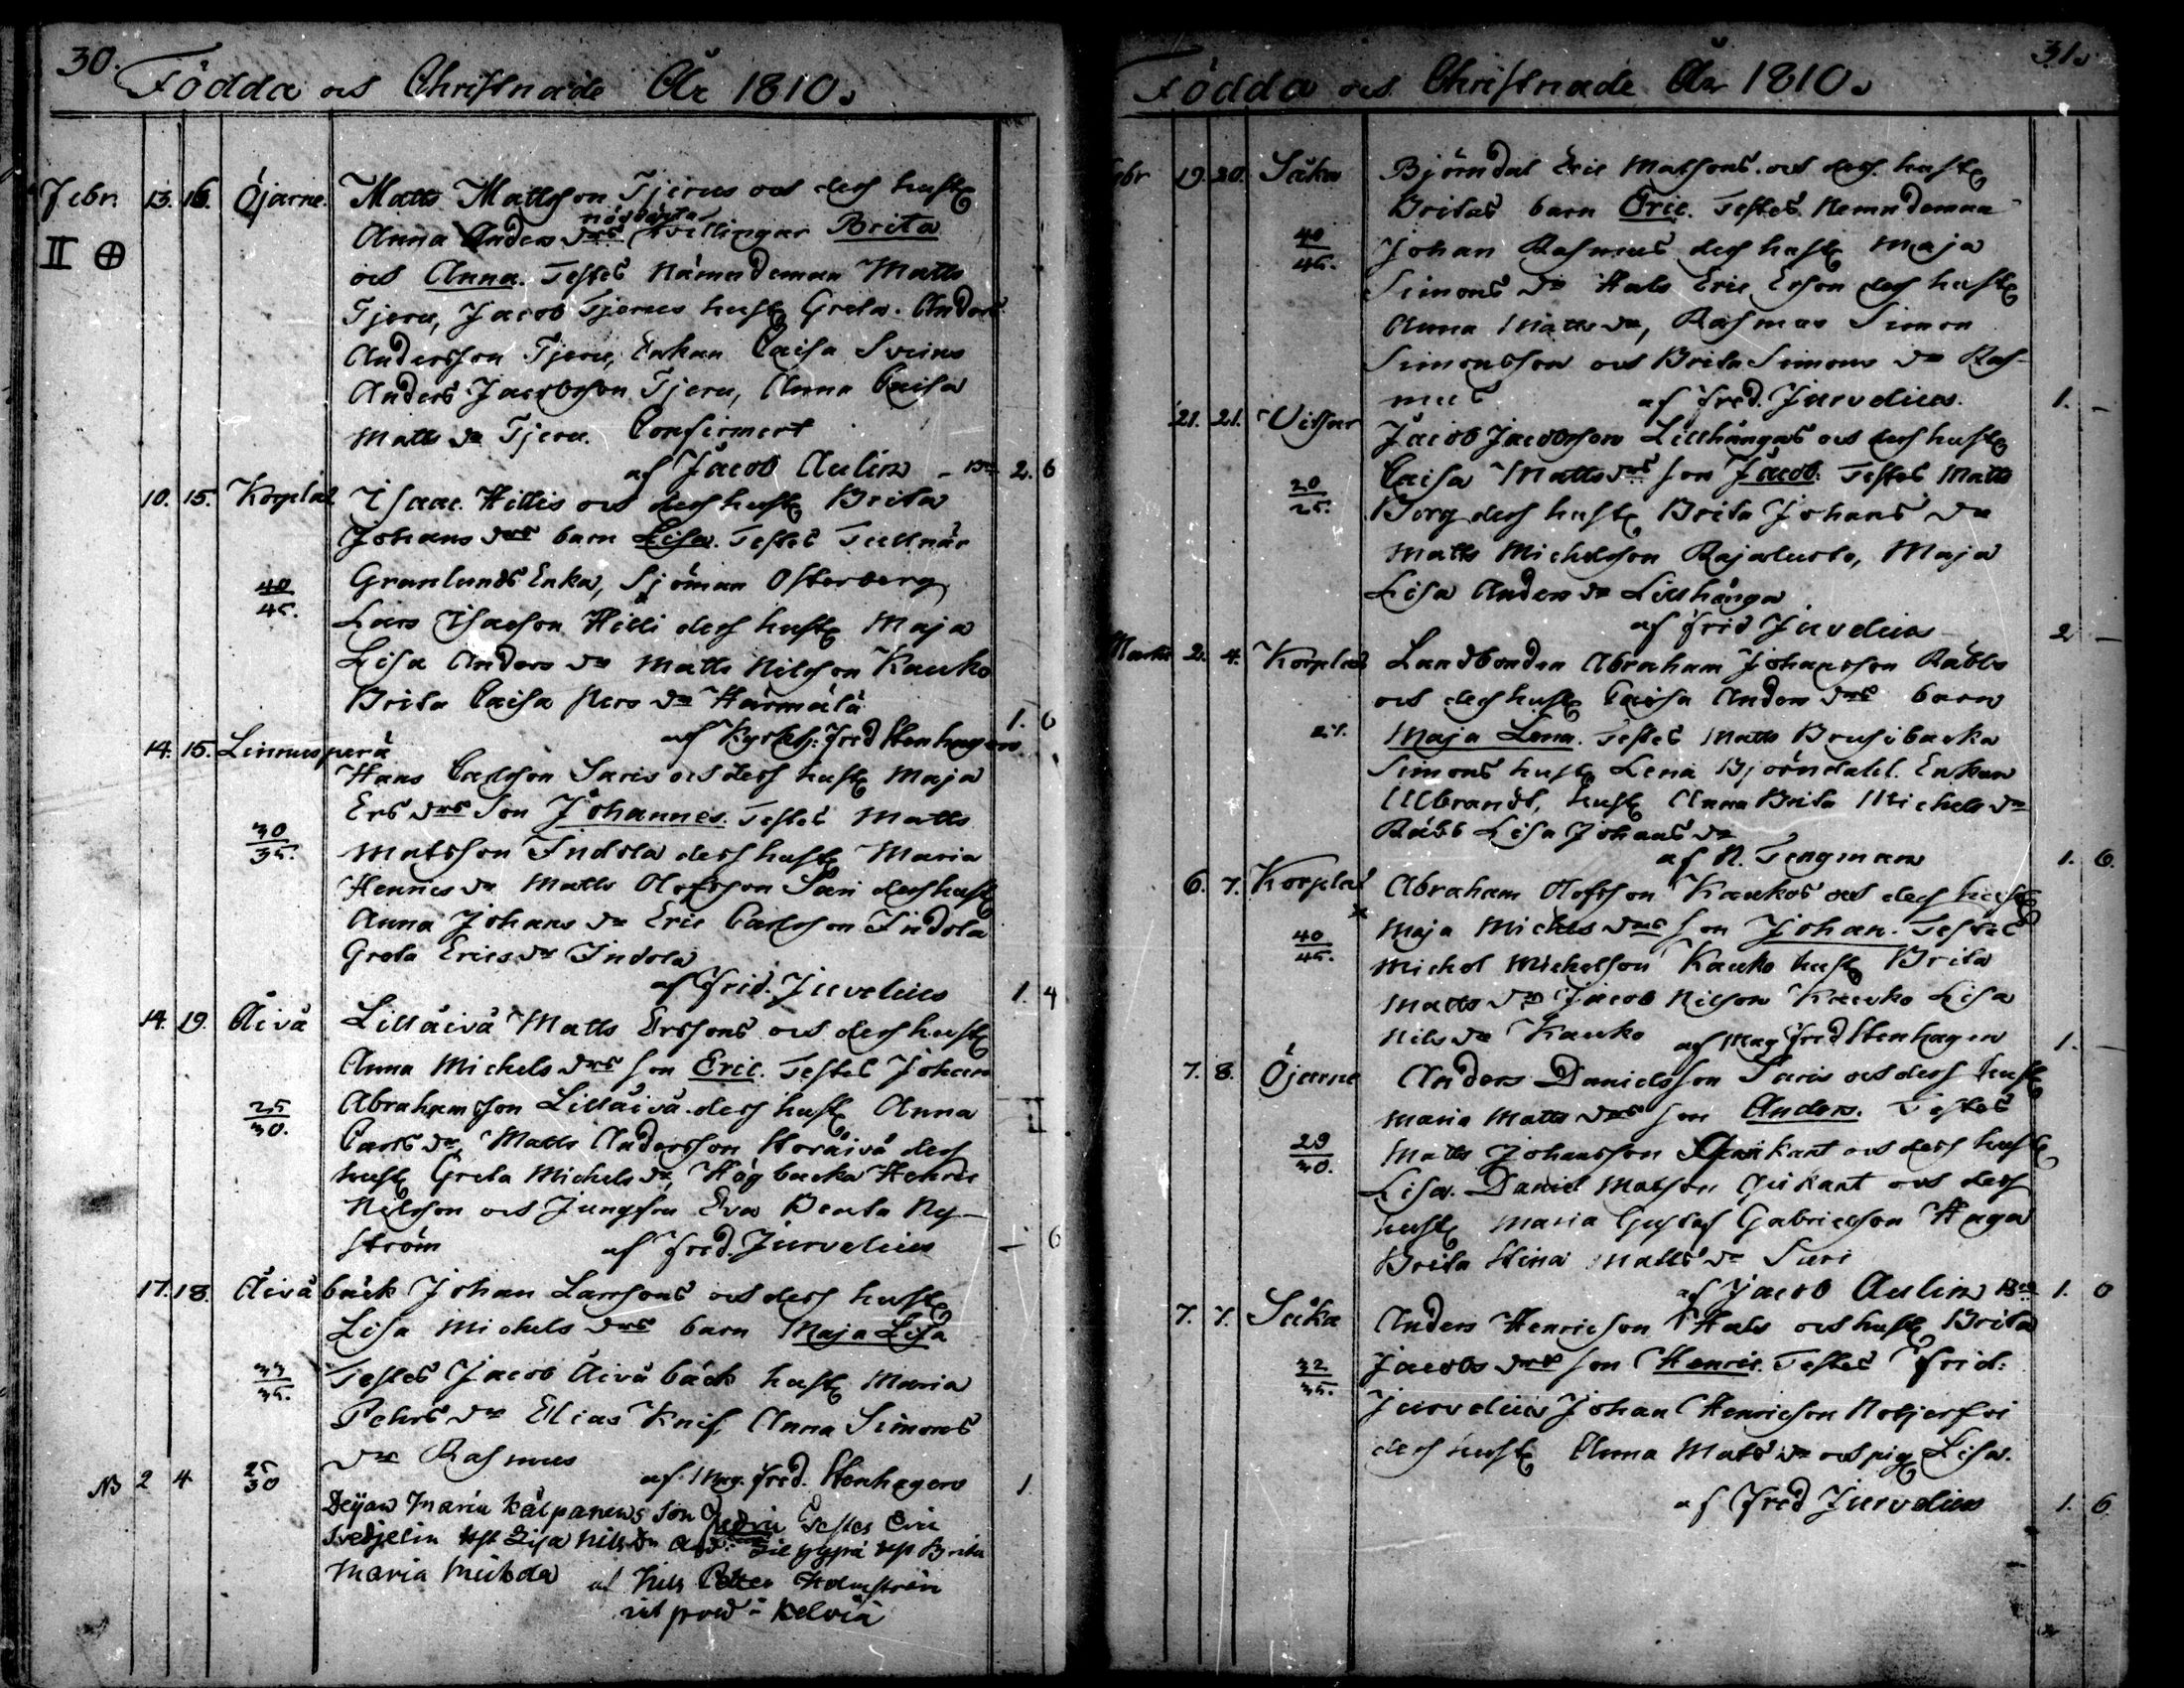 30.
Födda och Christnade År 1810.
Febr. 13. 16. Öjarne. Matts Mattsson Tjerus och dess hustr
Anna Anders drs nödöpta tvillingar Brita
II ⊕
och Anna. Testes Nämndeman Matts
Tjeru, Jacob Tjerus hustr Greta. Anders
Andersson Tjeru, Enkan Caisa Sveins
Anders Jacobsson Tjeru, Anna Caisa
Matts dr Tjeru. Confirmert
af Jacob Aulin 2. 6
10. 15. Korplax Isaac Hillis och dess hustr Brita
Johans drs barn Lisa. Testes Tullnär
40/45. Granlunds Enka, Sjöman Österberg
Lars Isacson Hilli dess hustr Maja
Lisa Anders dr Matts Nilsson Kauko
Brita Caisa Pers dr Härmälä
af Kyrkhj: Fred Stenhagen 1. 6
14. 15. Linnusperä
Hans Carlsson Saris och dess hustr Maja
Ers drs Son Johannes. Testes Matts
30/35. Matsson Indola dess hustr Maria
Hennes dr Matts Olofsson Sari dess hustr
Anna Johans dr Eric Carlsson Indola
Greta Erics dr Indola
af Frid. Jurvelius 1. 4
14. 19. Åivå Lillåivå Matts Erssons och dess hustr
Anna Michels drs son Eric. Testes Johan
25/30. Abrahamsson Lillåivå dess hustr Anna
Carls dr, Matts Andersson Storåivå dess
hustr Greta Michels dr, Högbacka Henric
Nilsson och Jungfru Eva Beata Ny-
ström af Fred. Jurvelius - 6
17. 18. Åivåbäck Johan Larssons och dess hustr
Lisa Michels drs barn Maja Lisa
33/35. Testes Jacob Åivåbäck hustr Maria
Pehrs dr Elias Knif, Anna Simons
dr Rasmus
af Mag. Fred. Stenhagen 1
NB 2 4 25/30
Deijan Maria Kälpanens son Testes Eric
Svedjelin hst Lisa Nils dr hst Brita
Maria
af Nils Petter Holmström
i Kelviå
31.
Födda och Christnade År 1810.
Febr 19. 20. Såka Björndal Eric Matsons. och dess hustr
Britas barn Eric. Testes Nemndeman
40/45. Johan Rasmus dess hustr Maja
Simons dr Hals Eric Erson dess hustr
Anna Matts dr, Rasmus Simon
Simonsson och Brita Simons dr Ras-
mus af Fred. Jurvelius. 1. -
21. 21. Vitsar Jacob Jacobsson Lillhångas och dess hustr
Caisa Matts drs son Jacob. Testes Matts
20/25. Borg dess hustr Brita Johans dr
Matts Michelsson Rajalusto, Maja
Lisa Anders dr Lillhånga
af Frid Jurvelius 2 -
Martii 2. 4. Korplax Landbonden Abraham Johansson Räbbs
och dess hustr Caisa Anders drs barn
Maja Lena. Testes Matts Brusibacka
Simons hustr Lena Björndahl. Enkan
Ulbrandt, hustr Anna Brita Michels dr
Räbb Lisa Johans dr
af N. Tengman 1. 6.
6. 7. Korplax Abraham Olofsson Kaukos och dess hustr
Maja Michels drs son Johan. Testes
40/45. Michel Michelsson Kauko hustr Brita
Matts dr Jacob Nilson Kauko Lisa
Nils dr Kauko af Mag Fred Stenhagen 1. -
7. 8. Öjarne Anders Danielsson Saris och dess hustr
Maria Matts drs son Anders. Testes
29/30. Matts Johansson och dess hustr
Lisa. Daniel Matson och dess
hustr Maria Gustaf Gabrielsson Haga
Brita Stina Matts dr Sari
af Jacob Aulin 1. 0
7. 7. Såka Anders Henricson Hals och hustr Brita
32/35. Jacobs drs son Henric. Testes Frid:
Jurvelius Johan Henricson
dess hustr Anna Mats dr och pig Lisa.
af Fred Jurvelius 1. 6